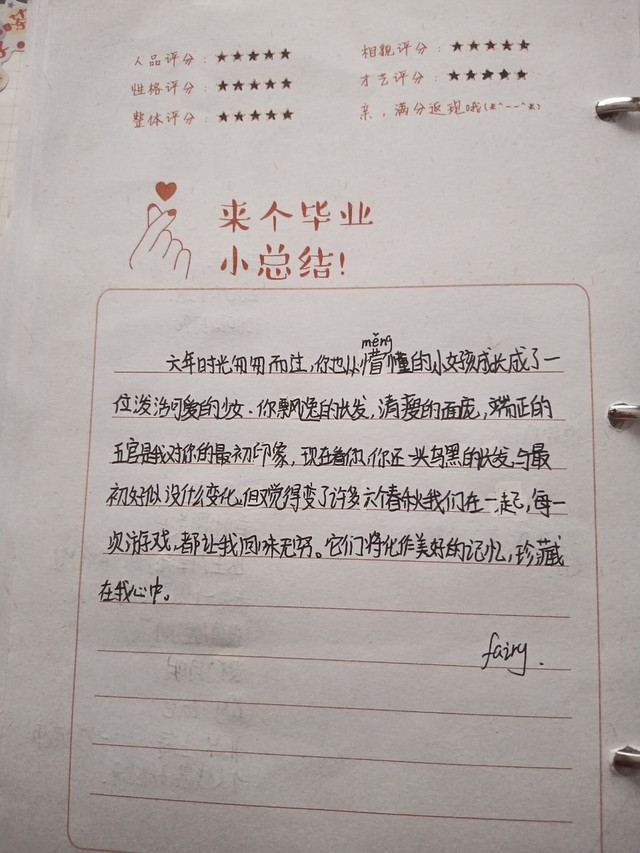 人品评分：★★★★★ 相貌评分：★★★★★
性格评分：★★★★★ 才艺评分：★★★★★
整体评分：★★★★★ 亲，满分返现哦(*^--^*)
来个毕业
小总结！
měng
六年时光匆匆而过，你也从懵懂的小女孩成长成了一
位泼活可爱的少女。你飘逸的长发，清瘦的面庞，端正的
五官是我对你的最初印象，现在看你，你还一头乌黑的长发，与最
初好似没什么变化，但又觉得变了许多六个春秋我们在一起，每一
次游戏，都让我回味无穷。它们将化作美好的记忆，珍藏
在我心中。
fairy.